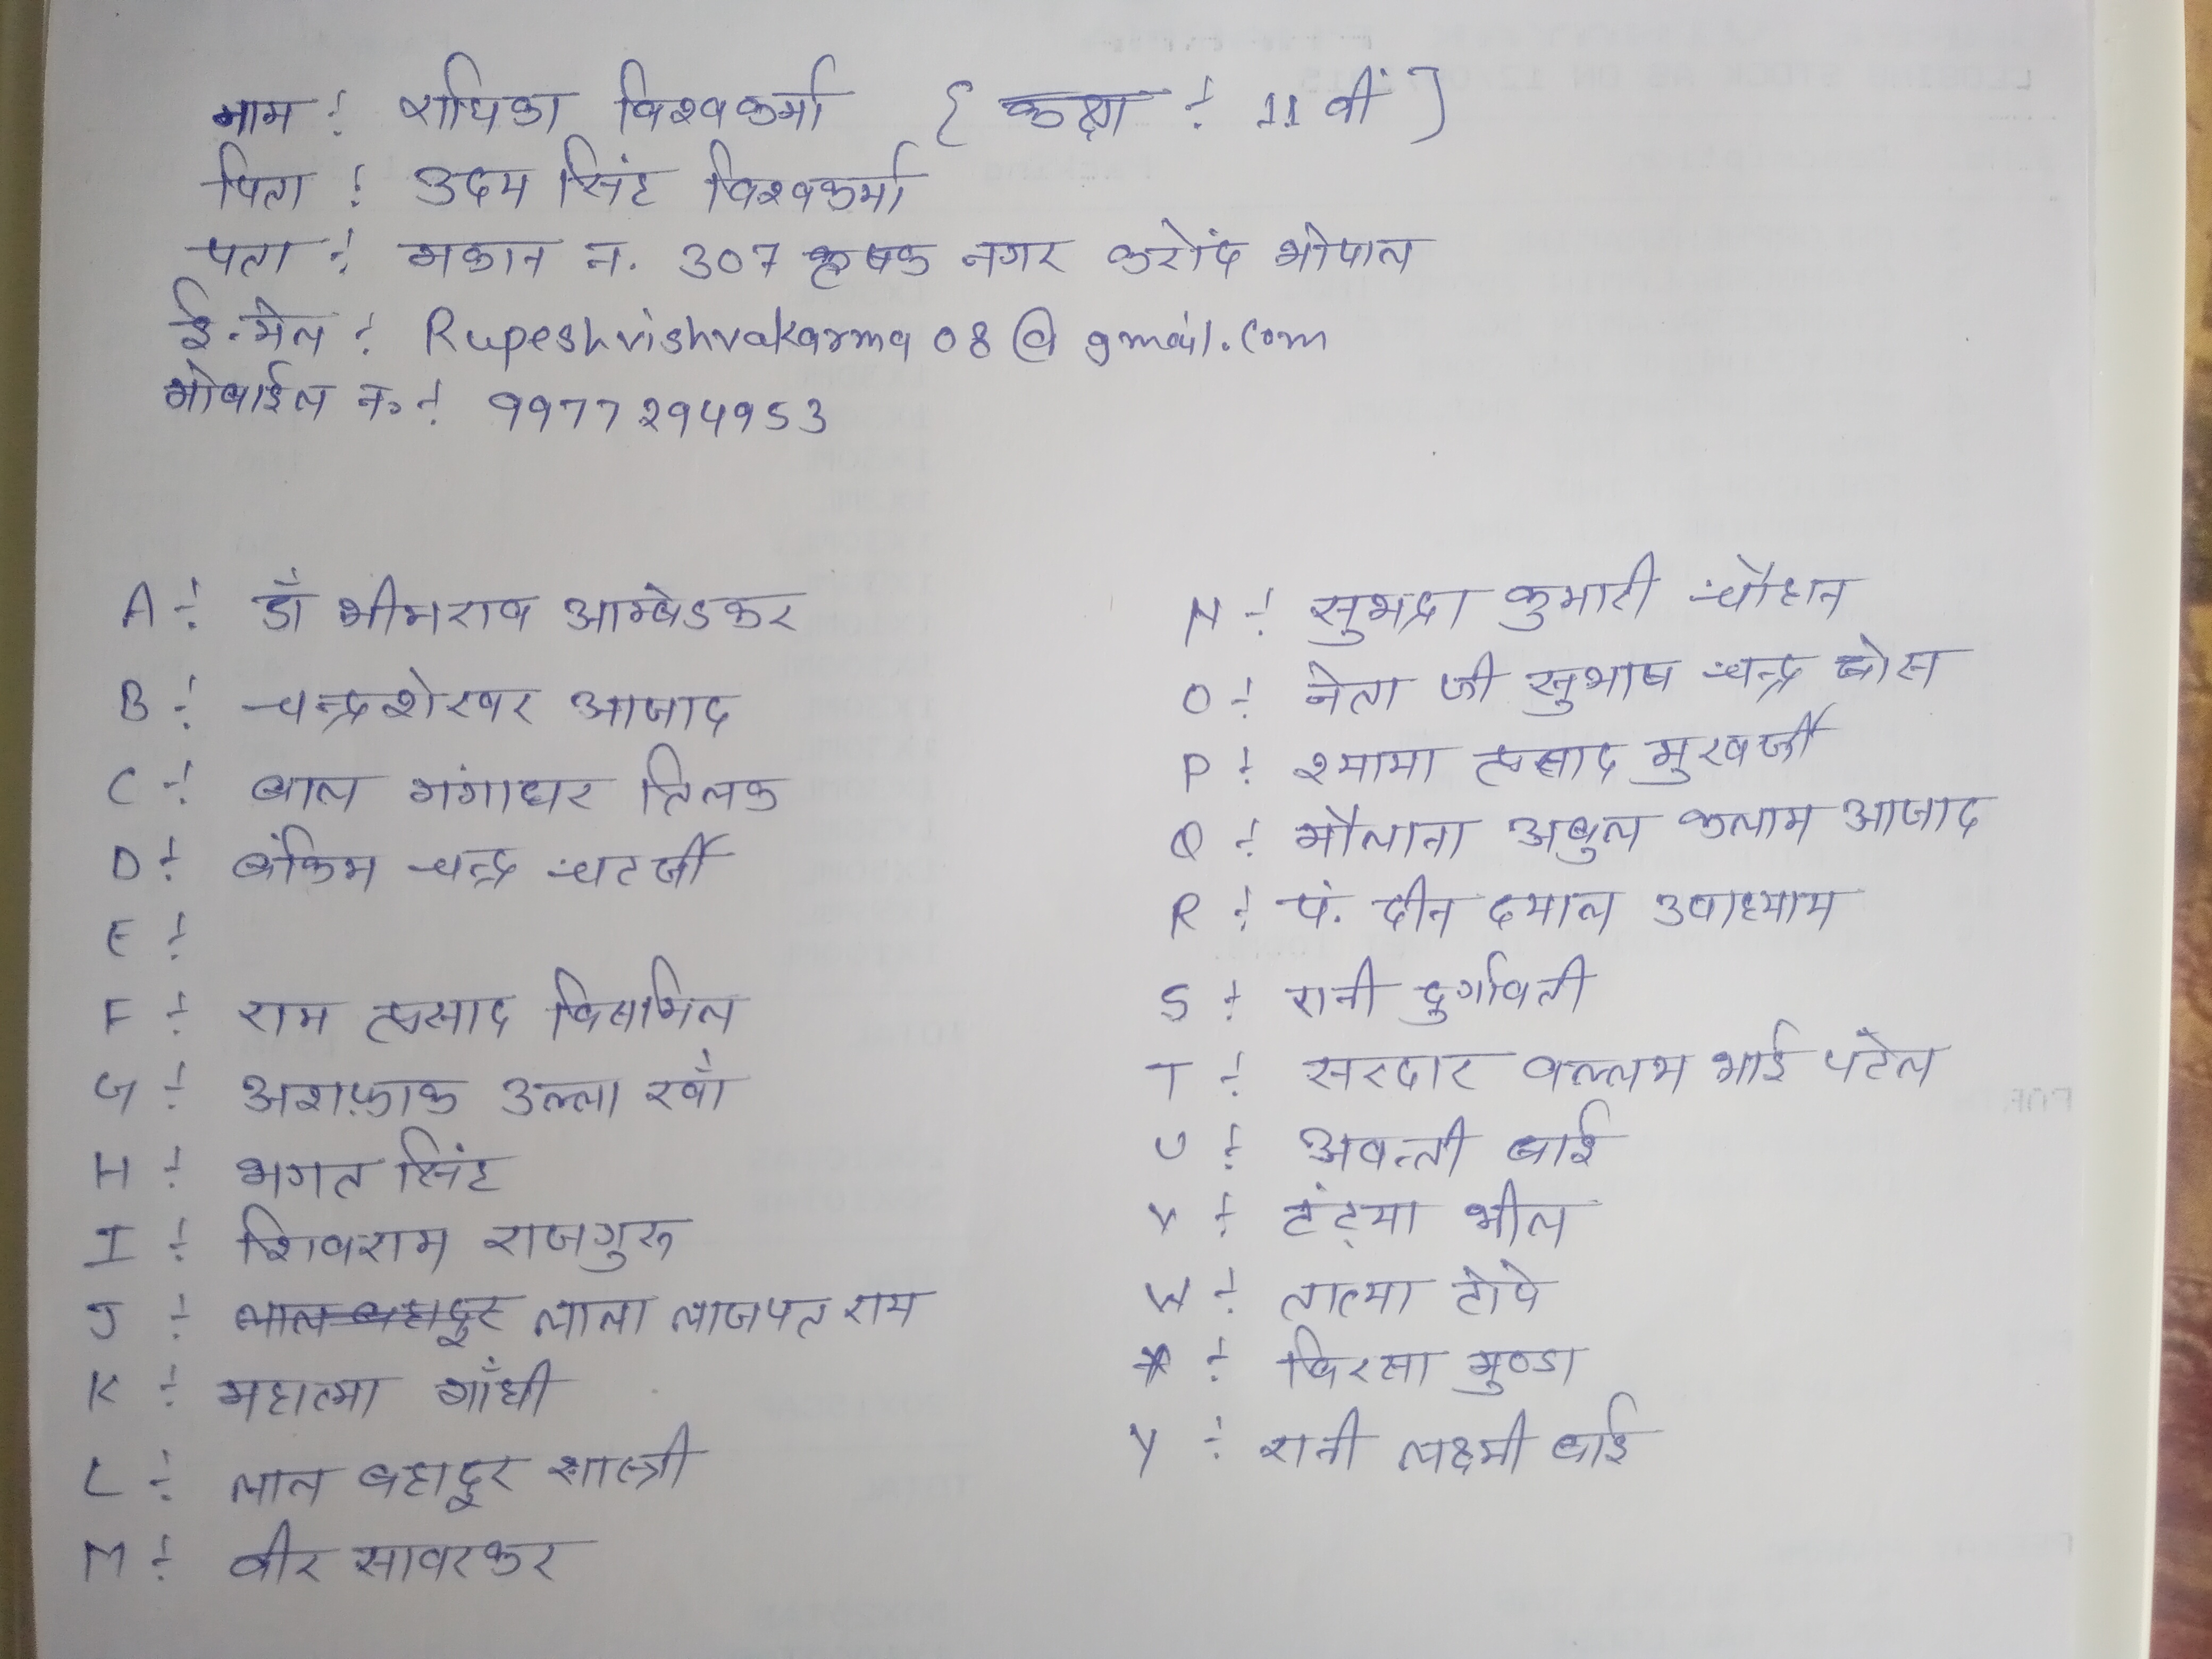 नाम :- राधिका विश्वकर्मा { कक्षा :- 11 वीं }
पिता :- उदय सिंह विश्वकर्मा
पता :- मकान न. 307 कृषक नगर करोंद भोपाल
ई-मेल :- Rupeshvishvakarma08@gmail.com
मोबाईल न. :- 9977294953
A :- डॉ भीमराव आम्बेडकर
B :- चन्द्रशेखर आजाद
C :- बाल गंगाधर तिलक
D :- बंकिम चन्द्र चटर्जी
E :-
F :- राम प्रसाद बिसमिल
G :- अशफ़ाक उल्ला खाँ
H :- भगत सिंह
I :- शिवराम राजगुरू
J :- लाल बहादूर लाला लाजपत राय
K :- महात्मा गाँधी
L :- लाल बहादूर शास्त्री
M :- वीर सावरकर
N :- सुभद्रा कुमारी चौहान
O :- नेता जी सुभाष चन्द्र बोस
P :- श्यामा प्रसाद मुखर्जी
Q :- मौलाना अबुल कलाम आजाद
R :- पं. दीन दयाल उपाध्याय
S :- रानी दुर्गावती
T :- सरदार वल्लभ भाई पटेल
U :- अवन्ती बाई
V :- टंट्या भील
W :- तात्या टोपे
X :- बिरसा मुण्डा
Y :- रानी लक्ष्मी बाई